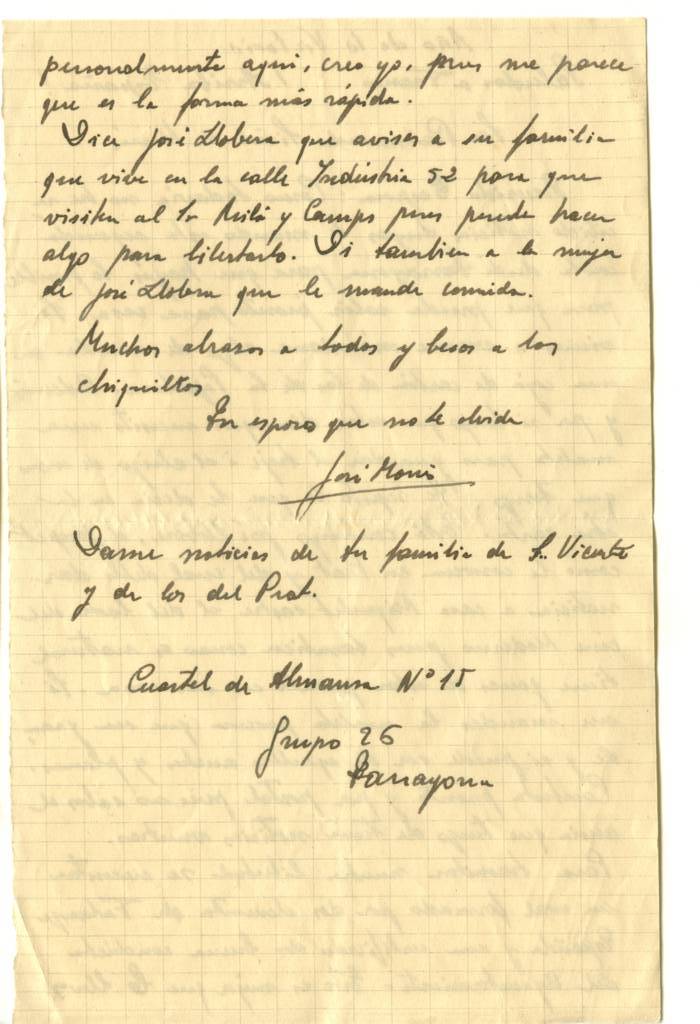 personalmente aqui, creo yo, pues me parece
que es la forma más rápida.
Dice José Llobera que avises a su familia
que vive en la calle Indústria 52 para que
visiten al Sr Milá y Camps pues puede hacer
algo para libertarlo. Di tambien a la mujer
de José Llobera que le mande comida.
Muchos abrazos a todos y besos a los
chiquillos
Tu esposo que no te olvida
José
Darme noticias de tu familia de S. Vicente
y de los del Prat.
Cuartel de Almansa Nº 15
Grupo 26
Tarragona